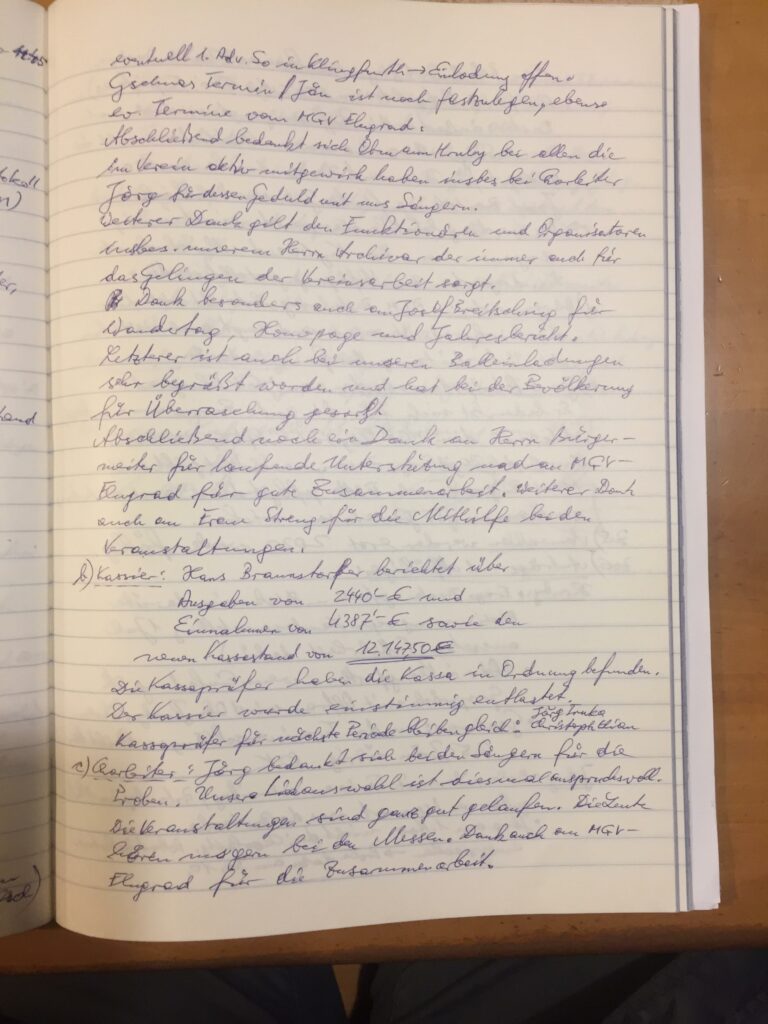 eventuell 1. Adv. So in Klingfurth → Einladung offen.
Gschnas Termin / Jän ist noch festzulegen, ebenso
ev. Termine vom MGV
Abschließend bedankt sich Obmann Hruby bei allen die
im Verein aktiv mitgewirk haben insbes bei Chorleiter
Jörg für dessen Geduld mit uns Sängern.
Weiterer Dank gilt den Funktionären und Organisatoren
insbes. unserem Herrn Archivar der immer auch für
das Gelingen der Vereinsarbeit sorgt.
Dank besonders auch an Josef Breitsching für
Wandertag, Homepage und Jahresbericht.
Letzterer ist auch bei unseren Balleinladungen
sehr begrüßt worden und hat bei der Bevölkerung
für Überraschung gesorgt
Abschließend noch ein Dank an Herrn Bürger-
meister für laufende Unterstützung und an MGV-
für gute Zusammenarbeit. Weiterer Dank
auch an Frau Streng für die Mithilfe bei den
Veranstaltungen.
b) Kassier: Hans Braunstorfer berichtet über
Ausgaben von 2440'- € und
Einnahmen von 4387'- € sowie den
neuen Kassastand von 12.147,50 €
Die Kassaprüfer haben die Kassa in Ordnung befunden.
Der Kassier wurde einstimmig entlastet.
Kassaprüfer für nächste Periode bleiben gleich: Jörg
Christoph
c) Chorleiter: Jörg bedankt sich bei den Sängern für die
Proben. Unsere Liedauswahl ist diesmal anspruchsvoll.
Die Veranstaltungen sind ganz gut gelaufen. Die Leute
hören uns gern bei den Messen. Dank auch an MGV-
für die Zusammenarbeit.